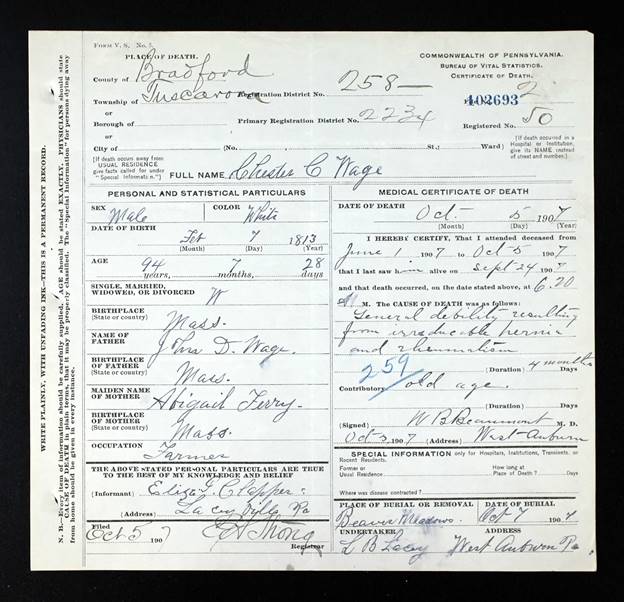 FORM V. S. No. 5.
PLACE OF DEATH.
County of Bradford
Township of Tuscarora
Borough of
City of (No. St.; Ward)
Registration District No. 258
Primary Registration District No. 2234
COMMONWEALTH OF PENNSYLVANIA.
BUREAU OF VITAL STATISTICS.
CERTIFICATE OF DEATH.
102693
2
Registered No. 50
[If death occurs away from USUAL RESIDENCE give facts called for under "Special Information."]
[If death occurred in a Hospital or Institution, give its NAME instead of street and number.]
FULL NAME Chester C Wage
PERSONAL AND STATISTICAL PARTICULARS
SEX Male
COLOR White
DATE OF BIRTH
Feb 7 1813
(Month) (Day) (Year)
AGE
94 years, 7 months, 28 days
SINGLE, MARRIED,
WIDOWED, OR DIVORCED W
BIRTHPLACE
(State or country) Mass.
NAME OF
FATHER John D. Wage.
BIRTHPLACE
OF FATHER
(State or country) Mass.
MAIDEN NAME
OF MOTHER Abigail Ferry.
BIRTHPLACE
OF MOTHER
(State or country) Mass.
OCCUPATION
Farmer
THE ABOVE STATED PERSONAL PARTICULARS ARE TRUE
TO THE BEST OF MY KNOWLEDGE AND BELIEF
(Informant) Eliza J. Clapper
(Address) Laceyville Pa
Filed
Oct 5 1907
Registrar
MEDICAL CERTIFICATE OF DEATH
DATE OF DEATH Oct. 5 1907
(Month) (Day) (Year)
I HEREBY CERTIFY, That I attended deceased from
June 1 1907 to Oct 5 1907
that I last saw him alive on Sept 24 1907
and that death occurred, on the date stated above, at 6.20
M. The CAUSE OF DEATH was as follows:
General debility resulting
from irreducable hernia
and rheumatism
(Duration) 4 months
259
Contributory old age.
(Duration)
(Signed) W B Beaumont M. D.
Oct 5 1907 (Address) West Auburn
SPECIAL INFORMATION only for Hospitals, Institutions, Transients, or Recent Residents.
Former or
Usual Residence
How long at
Place of Death? Days
Where was disease contracted?
PLACE OF BURIAL OR REMOVAL
Beaver Meadows
DATE OF BURIAL
Oct 7 1907
UNDERTAKER
L B Lacey
ADDRESS
West Auburn Pa
WRITE PLAINLY, WITH UNFADING INK—THIS IS A PERMANENT RECORD.
N. B.—Every item of information should be carefully supplied. AGE should be stated EXACTLY. PHYSICIANS should state
CAUSE OF DEATH in plain terms, that it may be properly classified. The "Special Information" for persons dying away
from home should be given in every instance.